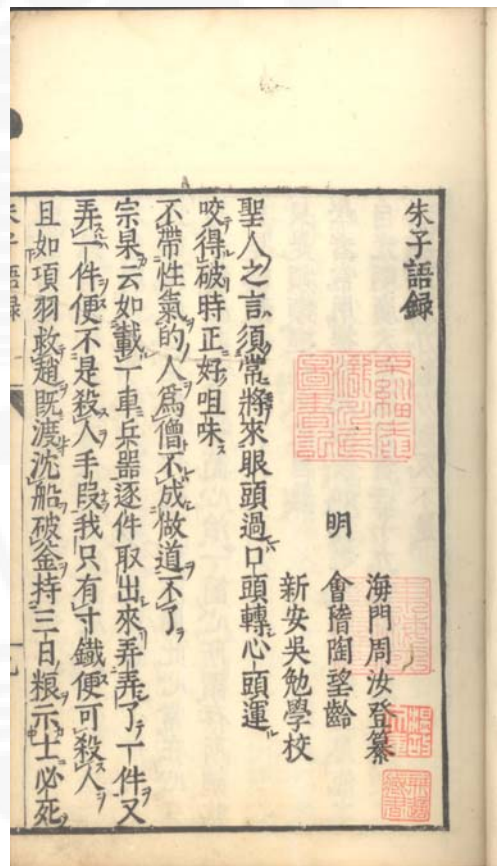 朱子語録
海門周汝登纂
明 會稽陶望齡
新安吳勉學校
聖人之言須常將來眼頭過口頭轉心頭運
咬得破時正好咀味
不帶性氣的人爲僧不成做道不了
宗杲云如載一車兵器逐件取出來弄弄了一件又
弄一件便不是殺人手段我只有寸鐵便可殺人
且如項羽救趙既渡沈船破釜持三日粮示士必死
朱子語録